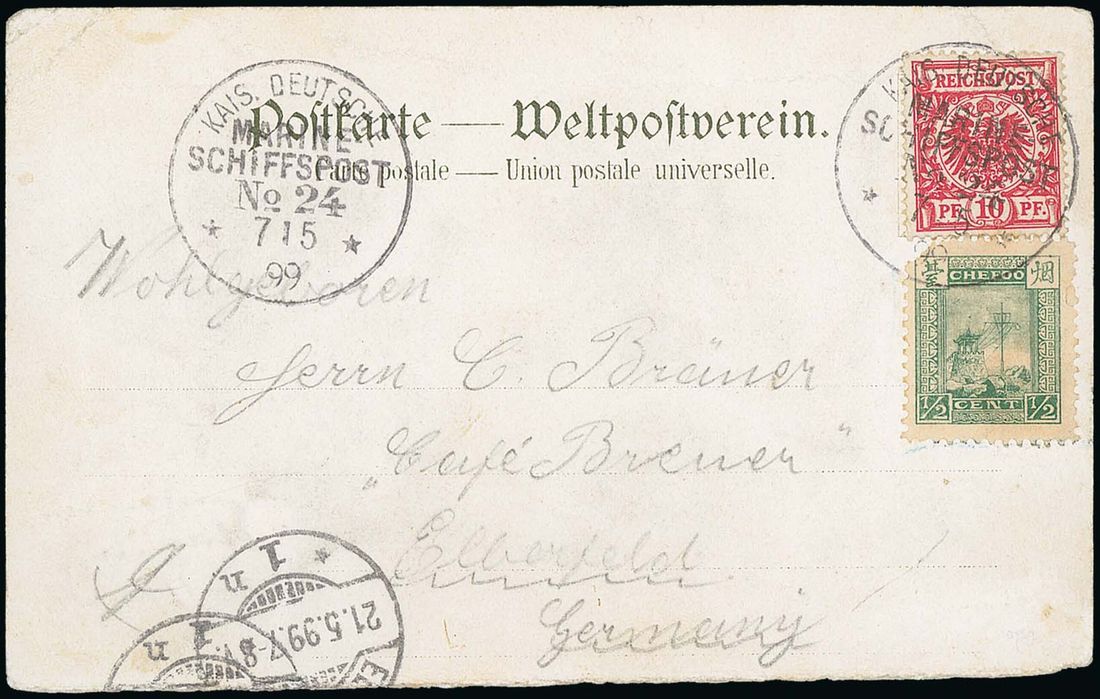 Postkarte — Weltpostverein.
Carte postale — Union postale universelle.
KAIS. DEUTSCHE
MARINE
SCHIFFSPOST
No 24
7 15
99
REICHSPOST
PF. 10 PF.
KAIS. DEUTSCHE
MARINE
SCHIFFSPOST
臺 CHEFOO 烟
1/2 CENT 1/2
Wohlgeboren
Herrn C. Bräuer
„Café Breuer"
Elberfeld
Germany
1
n
21.5.99.7-8
1
n